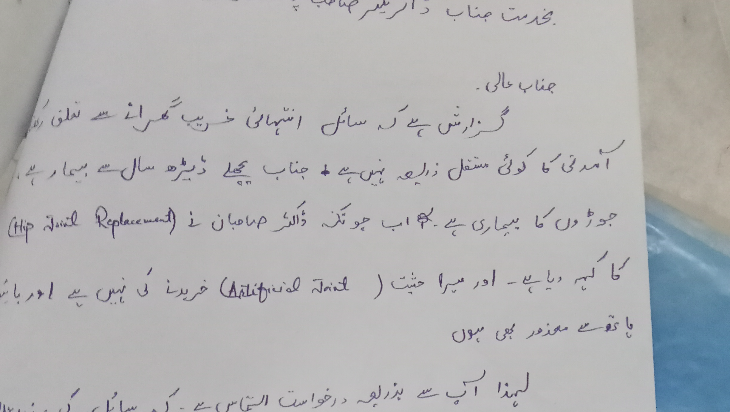 بخدمت جناب ڈائریکٹر صاحب
جناب عالی۔
گزارش ہے کہ سائل انتہائی غریب گھرانے سے تعلق
آمدنی کا کوئی مستقل ذریعہ نہیں ہے جناب پچھلے ڈیڑھ سال سے بیمار ہے۔
جوڑوں کا بیماری ہے۔ اب چونکہ ڈاکٹر صاحبان نے (Hip Joint Replacement)
کا کہہ دیا ہے۔ اور میرا حثیت (Artificial Joint) خریدنے کی نہیں ہے اور
ہاتھ سے معذور بھی ہوں
لہذا آپ سے بذریعہ درخواست التماس ہے۔ کہ سائل کی